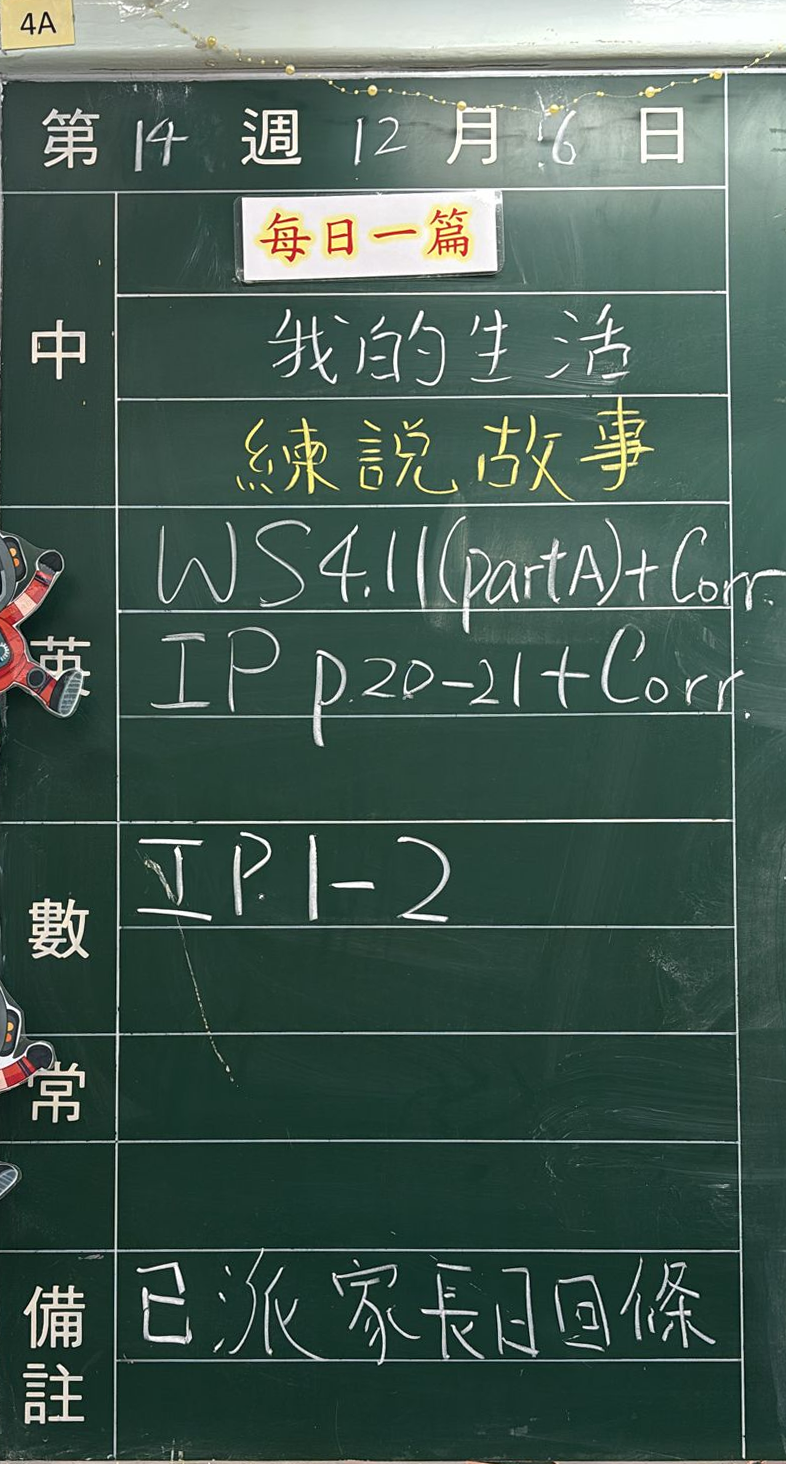 4A
第 14 週 12 月 6 日
中
每日一篇
我的生活
練說故事
英
WS4.11(partA)+Corr.
IP p.20-21+Corr.
數
工P.1-2
常
備註
已派家長日回條